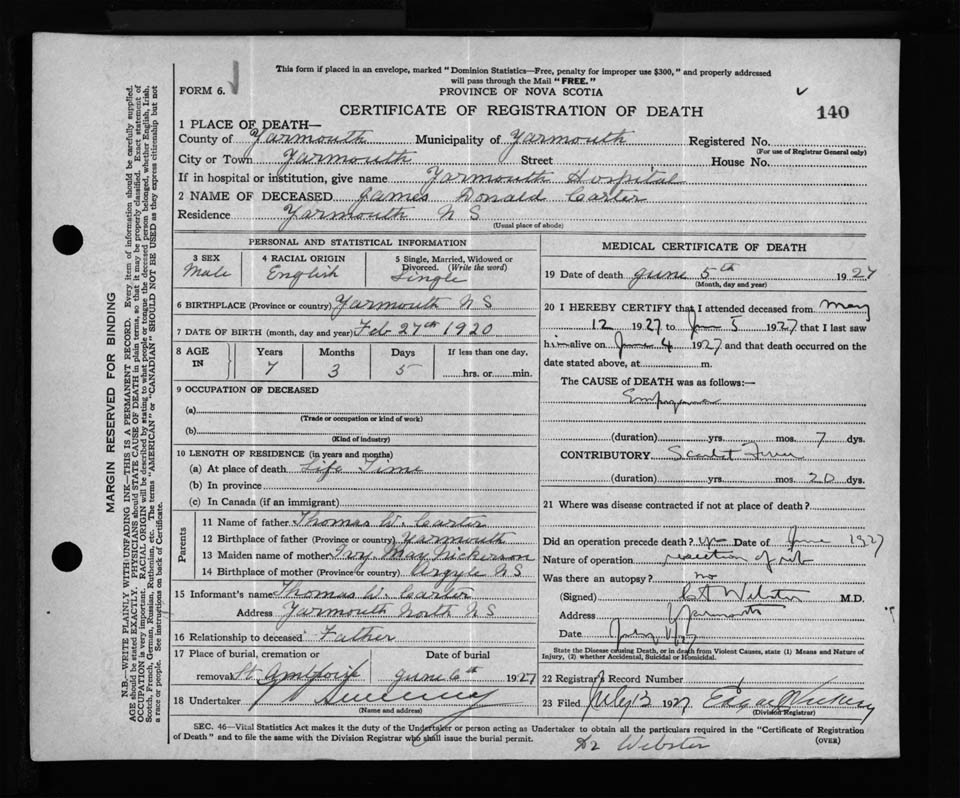 This form if placed in an envelope, marked "Dominion Statistics—Free, penalty for improper use $300," and properly addressed
will pass through the Mail "FREE."
FORM 6.
PROVINCE OF NOVA SCOTIA
CERTIFICATE OF REGISTRATION OF DEATH
140
1 PLACE OF DEATH—
County of Yarmouth Municipality of Yarmouth Registered No.
(For use of Registrar General only)
City or Town Yarmouth Street House No.
If in hospital or institution, give name Yarmouth Hospital
2 NAME OF DECEASED James Donald Carter
Residence Yarmouth N S
(Usual place of abode)
PERSONAL AND STATISTICAL INFORMATION
3 SEX
Male
4 RACIAL ORIGIN
English
5 Single, Married, Widowed or
Divorced. (Write the word)
Single
6 BIRTHPLACE (Province or country) Yarmouth N S
7 DATE OF BIRTH (month, day and year) Feb 27th 1920
8 AGE IN
Years Months Days If less than one day,
7 3 5 hrs. or min.
9 OCCUPATION OF DECEASED
(a)
(Trade or occupation or kind of work)
(b)
(Kind of industry)
10 LENGTH OF RESIDENCE (in years and months)
(a) At place of death Life Time
(b) In province
(c) In Canada (if an immigrant)
Parents
11 Name of father Thomas W. Carter
12 Birthplace of father (Province or country) Yarmouth
13 Maiden name of mother Ivy May Nickerson
14 Birthplace of mother (Province or country) Argyle N S
15 Informant's name Thomas W. Carter
Address Yarmouth North N S
16 Relationship to deceased Father
17 Place of burial, cremation or Date of burial
removal June 6th 1927
18 Undertaker Sweeney
(Name and address)
MEDICAL CERTIFICATE OF DEATH
19 Date of death June 5th 1927
(Month, day and year)
20 I HEREBY CERTIFY that I attended deceased from May
12 1927 to June 5 1927 that I last saw
him alive on June 4 1927 and that death occurred on the
date stated above, at m.
The CAUSE of DEATH was as follows:—
Empyema
(duration) yrs. mos. 7 dys.
CONTRIBUTORY Scarlet Fever
(duration) yrs. mos. 20 dys.
21 Where was disease contracted if not at place of death?
Did an operation precede death? yes Date of June 1927
Nature of operation resection of rib
Was there an autopsy? no
(Signed) Webster M.D.
Address Yarmouth
Date
State the Disease causing Death, or in death from Violent Causes, state (1) Means and Nature of
Injury, (2) whether Accidental, Suicidal or Homicidal.
22 Registrar's Record Number
23 Filed July 13 1927
(Division Registrar)
SEC. 46—Vital Statistics Act makes it the duty of the Undertaker or person acting as Undertaker to obtain all the particulars required in the "Certificate of Registration
of Death" and to file the same with the Division Registrar who shall issue the burial permit.
(OVER)
Dr Webster
MARGIN RESERVED FOR BINDING
N.B.—WRITE PLAINLY WITH UNFADING INK—THIS IS A PERMANENT RECORD. Every item of information should be carefully supplied.
AGE should be stated EXACTLY. PHYSICIANS should STATE CAUSE OF DEATH in plain terms, so that it may be properly classified. Exact statement of
OCCUPATION is very important. RACIAL ORIGIN will be described by stating to what people or tongue the deceased person belonged, whether English, Irish,
Scotch, French, German, Russian, Ruthenian, etc. The terms "AMERICAN" or "CANADIAN" SHOULD NOT BE USED as they express citizenship but not
a race or people. See instructions on back of Certificate.